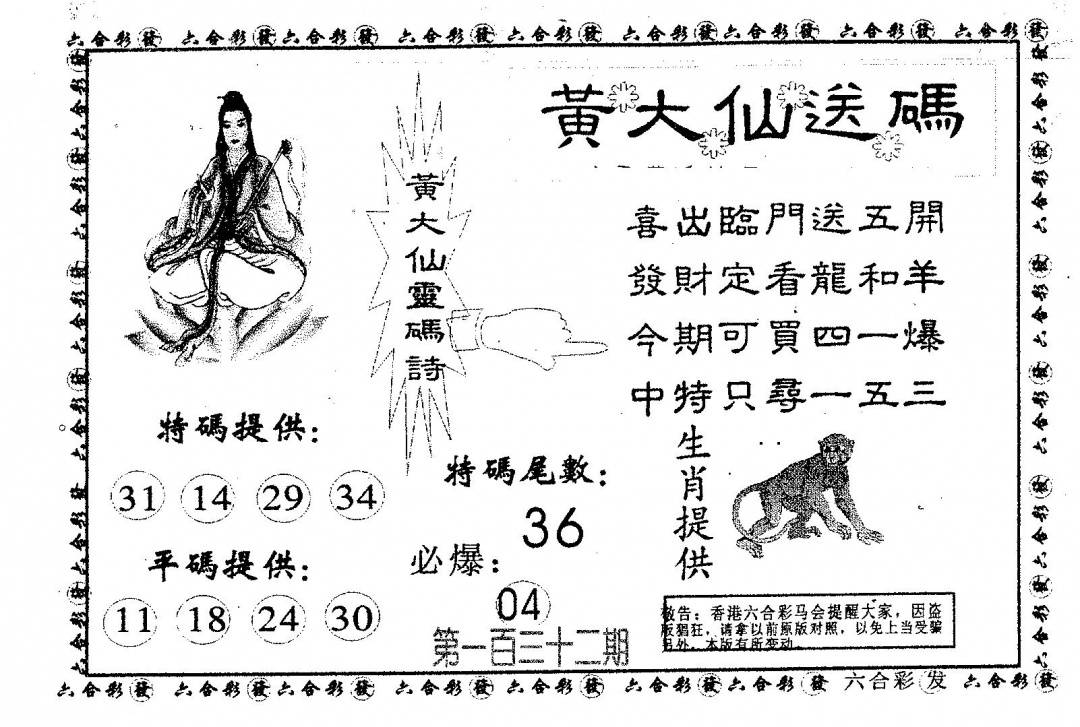 六合彩發 六合彩發六合彩發 六合彩發六合彩發 六合彩發六合彩發 六合彩發 六合彩發
黃大仙送碼
黃大仙靈碼詩
喜出臨門送五開
發財定看龍和羊
今期可買四一爆
中特只尋一五三
特碼提供：
31 14 29 34
平碼提供：
11 18 24 30
特碼尾數：
36
必爆：
04
第一百三十二期
生肖提供
敬告：香港六合彩马会提醒大家，因盗
版猖狂，请拿以前原版对照，以免上当受骗
另外，本版有所变动。
六合彩發 六合彩發六合彩發 六合彩發六合彩發 六合彩發六合彩發 六合彩发 六合彩發